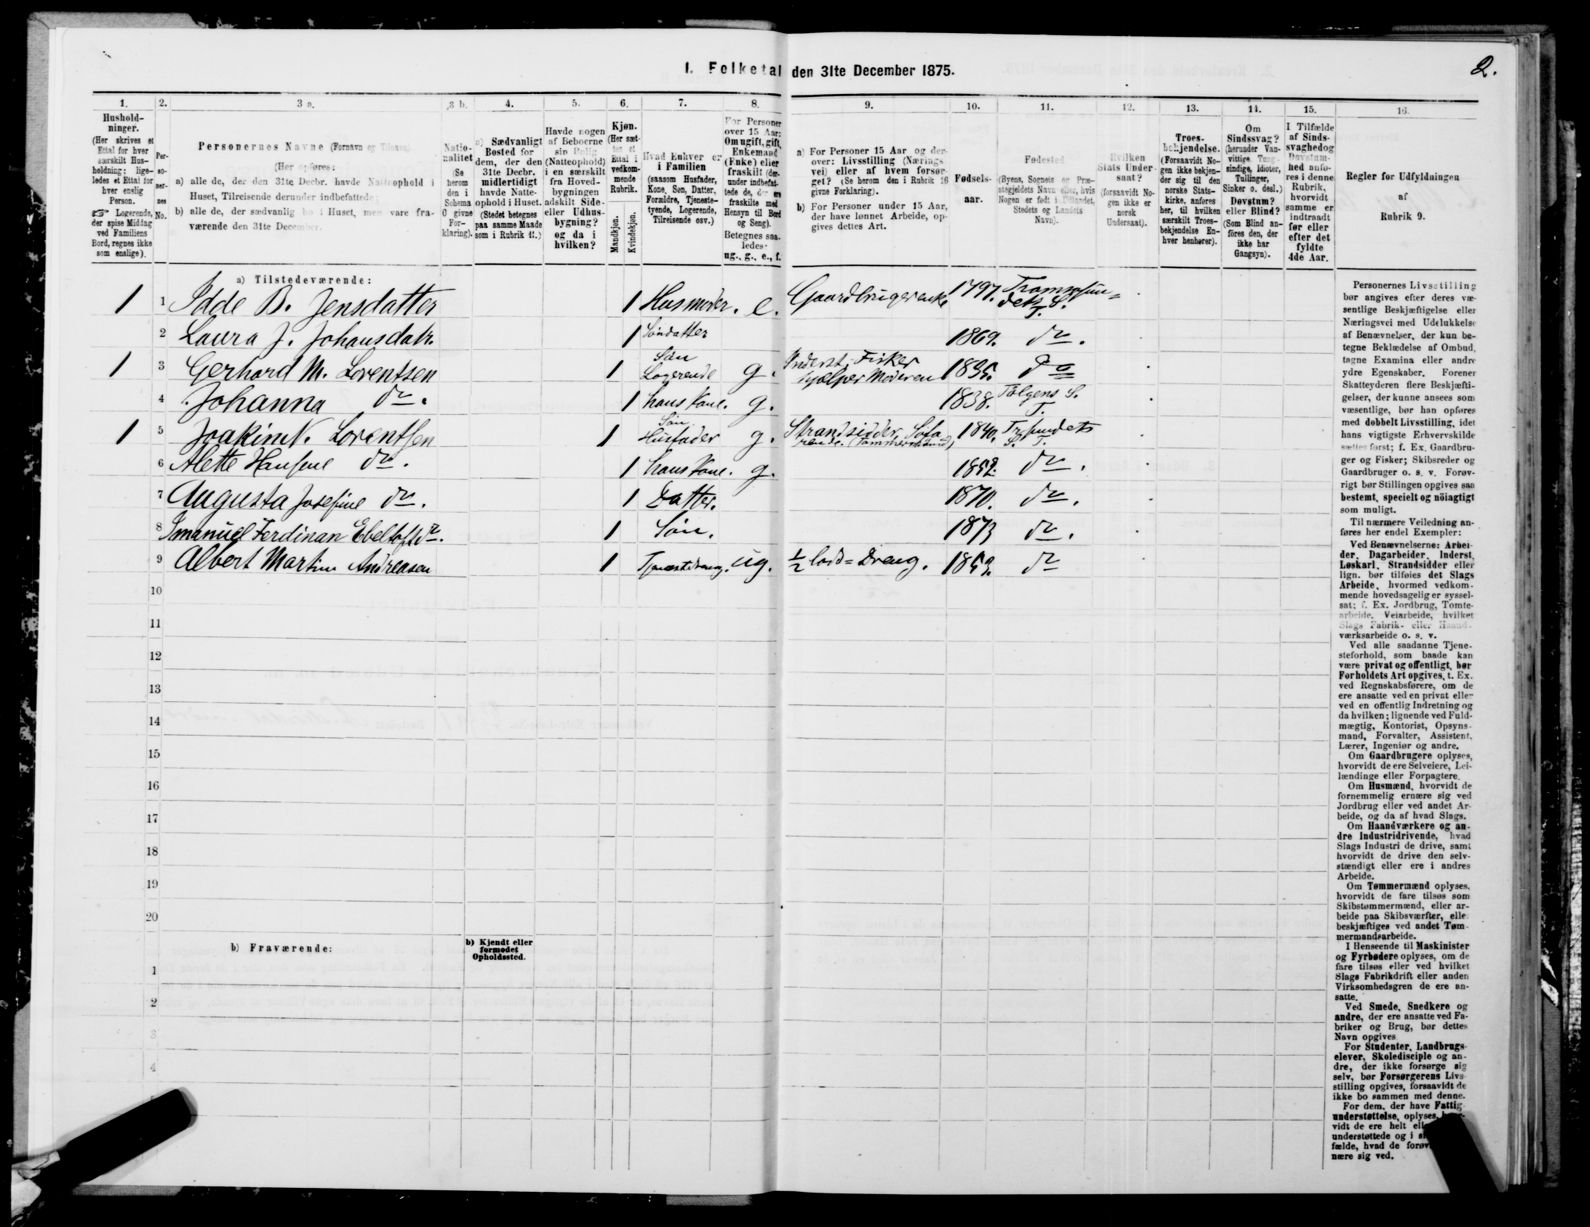 2.
I. Folketal den 31te December 1875.
1. 2. 3 a. 3 b. 4. 5. 6. 7. 8. 9. 10. 11. 12. 13. 14. 15. 16.
Hushold-
ninger.
(Her skrives et
Ettal for hver
særskilt Hus-
holdning; lige-
ledes et Ettal for
hver enslig
Person.
☞ Logerende,
der spise Middag
ved Familiens
Bord, regnes ikke
som enslige).
Per-
so-
ner-
nes
No.
Personernes Navne (Fornavn og Tilnavn).
(Her opføres:
a) alle de, der den 31te Decbr. havde Natteophold i
Huset, Tilreisende derunder indbefattede;
b) alle de, der sædvanlig bo i Huset, men vare fra-
værende den 31te December.
Natio-
nalitet
(Se
herom
den i
Schema
O givne
For-
klaring).
a) Sædvanligt
Bosted for
dem, der den
31te Decbr.
midlertidigt
havde Natte-
ophold i Huset.
(Stedet betegnes
paa samme Maade
som i Rubrik 11.)
Havde nogen
af Beboerne
sin Bolig
(Natteophold)
i en særskilt
fra Hoved-
bygningen
adskilt Side-
eller Udhus-
bygning?
og da i
hvilken?
Kjøn.
(Her sæt-
tes et
Ettal i
vedkom-
mende
Rubrik.
Mandkjøn.
Kvindekjøn.
Hvad Enhver er
i Familien
(saasom Husfader,
Kone, Søn, Datter,
Forældre, Tjeneste-
tyende, Logerende,
Tilreisende osv.)
For Personer
over 15 Aar:
Om ugift, gift,
Enkemand
(Enke) eller
fraskilt (der-
under indbefat-
tede de, der ere
fraskilte med
Hensyn til Bord
og Seng).
Betegnes saa-
ledes:
ug., g., e., f.
a) For Personer 15 Aar og der-
over: Livsstilling (Nærings-
vei) eller af hvem forsør-
get? (Se herom den i Rubrik 16
givne Forklaring).
b) For Personer under 15 Aar,
der have lønnet Arbeide, op-
gives dettes Art.
Fødsels-
aar.
Fødested
(Byens, Sognets og Præ-
stegjeldets Navn eller, hvis
Nogen er født i Udlandet,
Stedets og Landets
Navn).
Hvilken
Stats Under-
saat?
(forsaavidt No-
gen ikke er
norsk
Undersaat).
Troes-
bekjendelse.
(Forsaavidt No-
gen ikke bekjen-
der sig til den
norske Stats-
kirke, anføres
her, til hvilken
særskilt Troes-
bekjendelse En-
hver henhører).
Om
Sindssvag?
(herunder Van-
vittige, Tung-
sindige, Idioter,
Tullinger,
Sinker o. desl.)
Døvstum?
eller Blind?
(Som Blind an-
føres den, der
ikke har
Gangsyn).
I Tilfælde
af Sinds-
svaghed og
Døvstum-
hed anfø-
res i denne
Rubrik,
hvorvidt
samme er
indtraadt
før eller
efter det
fyldte
4de Aar.
Regler for Udfyldningen
af
Rubrik 9.
a) Tilstedeværende:
1 1 Idde B. Jensdatter 1 Husmoder. e. Gaardbrugerenke 1797. Tromsøsun=
dets S.
T.
2 Laura J. Johansdatr. 1 Søndatter 1869. do.
1 3 Gerhard M. Lorentsen 1 Søn
Logerende g. Inderst. Fisker
hjælper Moderen 1835. do
4 Johanna do. 1 hans Kone. g. 1838. S.
T.
1 5 Joakim N. Lorentsen 1 Søn
Husfader g. Strandsidder 1840. Tr.sundets
S. T.
6 Alette Hansine do. 1 hans Kone. g. 1852. do.
7 Augusta Josefine do. 1 Datter. 1870. do.
8 Imanuel Ferdinan Ebeltoft do. 1 Søn. 1873 do.
9 Albert Martin Andreasen 1 Tjenestedreng. ug. ½ lods=Dreng. 1859. do
10
11
12
13
14
15
16
17
18
19
20
b) Fraværende:
b) Kjendt eller
formodet
Opholdssted.
1
2
3
4
Personernes Livsstilling
bør angives efter deres væ-
sentlige Beskjæftigelse eller
Næringsvei med Udelukkelse
af Benævnelser, der kun be-
tegne Beklædelse af Ombud,
tagne Examina eller andre
ydre Egenskaber. Forener
Skatteyderen flere Beskjæfti-
gelser, der kunne ansees som
væsentlige, bør han opføres
med dobbelt Livsstilling, idet
hans vigtigste Erhvervskilde
sættes først; f. Ex. Gaardbru-
ger og Fisker; Skibsreder og
Gaardbruger o. s. v. Forøv-
rigt bør Stillingen opgives saa
bestemt, specielt og nöiagtigt
som muligt.
Til nærmere Veiledning an-
føres her endel Exempler:
Ved Benævnelserne: Arbei-
der, Dagarbeider, Inderst,
Løskarl, Strandsidder eller
lign. bør tilføies det Slags
Arbeide, hvormed vedkom-
mende hovedsagelig er syssel-
sat; f. Ex. Jordbrug, Tomte-
arbeide, Veiarbeide, hvilket
Slags Fabrik- eller Haand-
værksarbeide o. s. v.
Ved alle saadanne Tjene-
steforhold, som baade kan
være privat og offentligt, bør
Forholdets Art opgives, t. Ex.
ved Regnskabsførere, om de
ere ansatte ved en privat eller
ved en offentlig Indretning og
da hvilken; lignende ved Fuld-
mægtig, Kontorist, Opsyns-
mand, Forvalter, Assistent,
Lærer, Ingeniør og andre.
Om Gaardbrugere oplyses,
hvorvidt de ere Selveiere, Lei-
lændinge eller Forpagtere.
Om Husmænd, hvorvidt de
fornemmelig ernære sig ved
Jordbrug eller ved andet Ar-
beide, og da af hvad Slags.
Om Haandværkere og an-
dre Industridrivende, hvad
Slags Industri de drive, samt
hvorvidt de drive den selv-
stændigt eller ere i andres
Arbeide.
Om Tømmermænd oplyses,
hvorvidt de fare tilsøs som
Skibstømmermænd, eller ar-
beide paa Skibsværfter, eller
beskjæftiges ved andet Tøm-
mermandsarbeide.
I Henseende til Maskinister
og Fyrbødere oplyses, om de
fare tilsøs eller ved hvilket
Slags Fabrikdrift eller anden
Virksomhedsgren de ere an-
satte.
Ved Smede, Snedkere og
andre, der ere ansatte ved Fa-
briker og Brug, bør dettes
Navn opgives
For Studenter, Landbrugs-
elever, Skoledisciple og an-
dre, der ikke forsørge sig
selv, bør Forsørgerens Livs-
stilling opgives, forsaavidt de
ikke bo sammen med denne.
For dem, der have Fattig-
understøttelse, oplyses,
vidt de ere helt
understøttede og i
fælde, hvad de
nære sig ved.